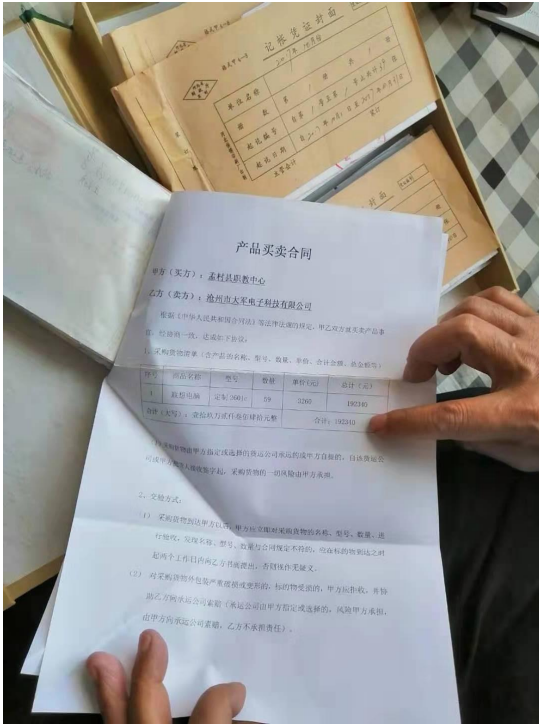 记帐凭证封面
2017年10月份
单位名称
册数 第 1 册共 1 册
起讫编号
起讫日期
主管会计
封面
产品买卖合同
甲方（买方）：孟村县职教中心
乙方（卖方）：沧州市大军电子科技有限公司
根据《中华人民共和国合同法》等法律法规的规定，甲乙双方就买卖产品事
宜，经协商一致，达成如下协议：
1、采购货物清单（含产品的名称、型号、数量、单价、合计金额、总金额等）
序号 商品名称 型号 数量 单价（元） 总计（元）
1 联想电脑 59 3260 192340
合计（大写）：壹拾玖万贰仟叁佰肆拾元整 合计：192340
采购货物由甲方指定或选择的货运公司承运的或甲方自提的，自该货运公
司或甲方 签字起，采购货物的一切风险由甲方承担。
2、交验方式：
（1） 采购货物到达甲方以后，甲方应立即对采购货物的名称、型号、数量、进
行验收，发现名称、型号、数量与合同规定不符的，应在标的物到达之时
起两个工作日内向乙方书面提出，否则视作无疑义。
（2） 对采购货物外包装严重破损或变形的，标的物受损的，甲方应拒收，并协
助乙方向承运公司索赔（承运公司由甲方指定或选择的，风险甲方承担，
由甲方向承运公司索赔，乙方不承担责任）。